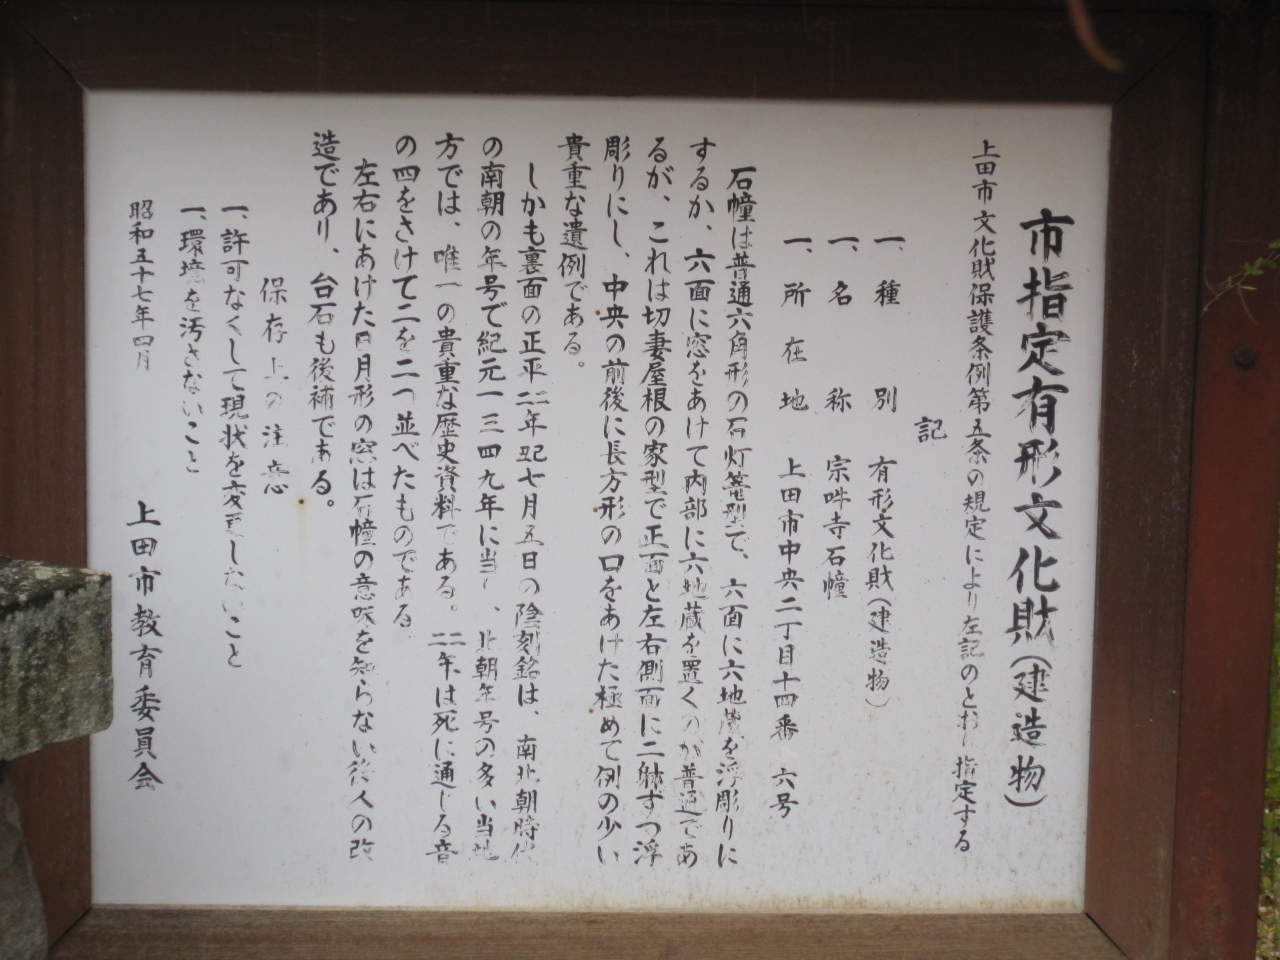 市指定有形文化財(建造物)
上田市文化財保護条例第五条の規定により左記のとおり指定する
記
一、種別 有形文化財(建造物)
一、名称 宗吽寺石幢
一、所在地 上田市中央二丁目十四番六号
石幢は普通六角形の石灯篭型で、六面に六地蔵を浮彫りに
するか、六面に窓をあけて内部に六地蔵を置くのが普通であ
るが、これは切妻屋根の家型で正面と左右側面に二躰すつ浮
彫りにし、中央の前後に長方形の口をあけた極めて例の少い
貴重な遺例である。
しかも裏面の正平二二年 七月五日の陰刻銘は、南北朝時代
の南朝の年号で紀元一三四九年に当り、北朝年号の多い当地
方では、唯一の貴重な歴史資料である。二二年は死に通じる音
の四をさけて二を二つ並べたものである
左右にあけた日月形の窓は石幢の意味を知らない後人の改
造であり、台石も後補である。
保存上の注意
一、許可なくして現状を変更しないこと
一、環境を汚さないこと
昭和五十七年四月
上田市教育委員会